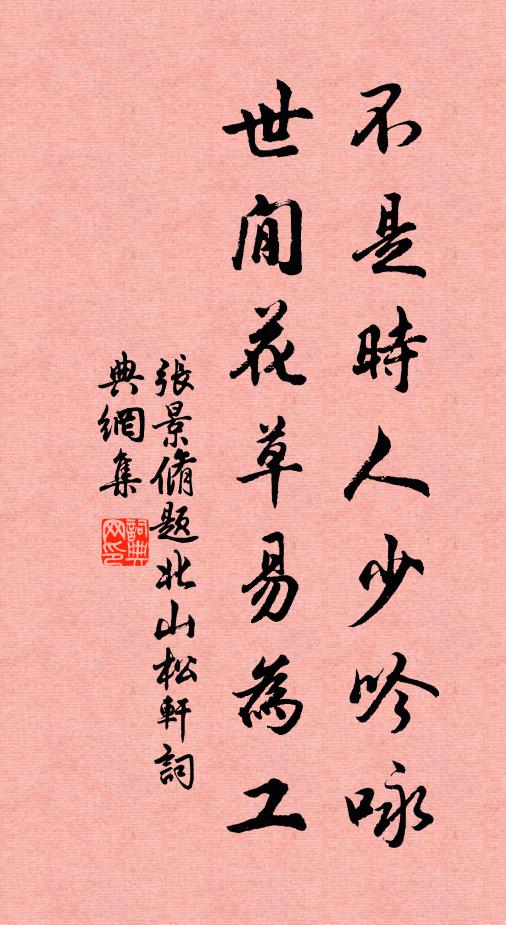 不是時人少吟咏
世間花草易為工
張景脩題北山松軒詞
典網集
詞典網印